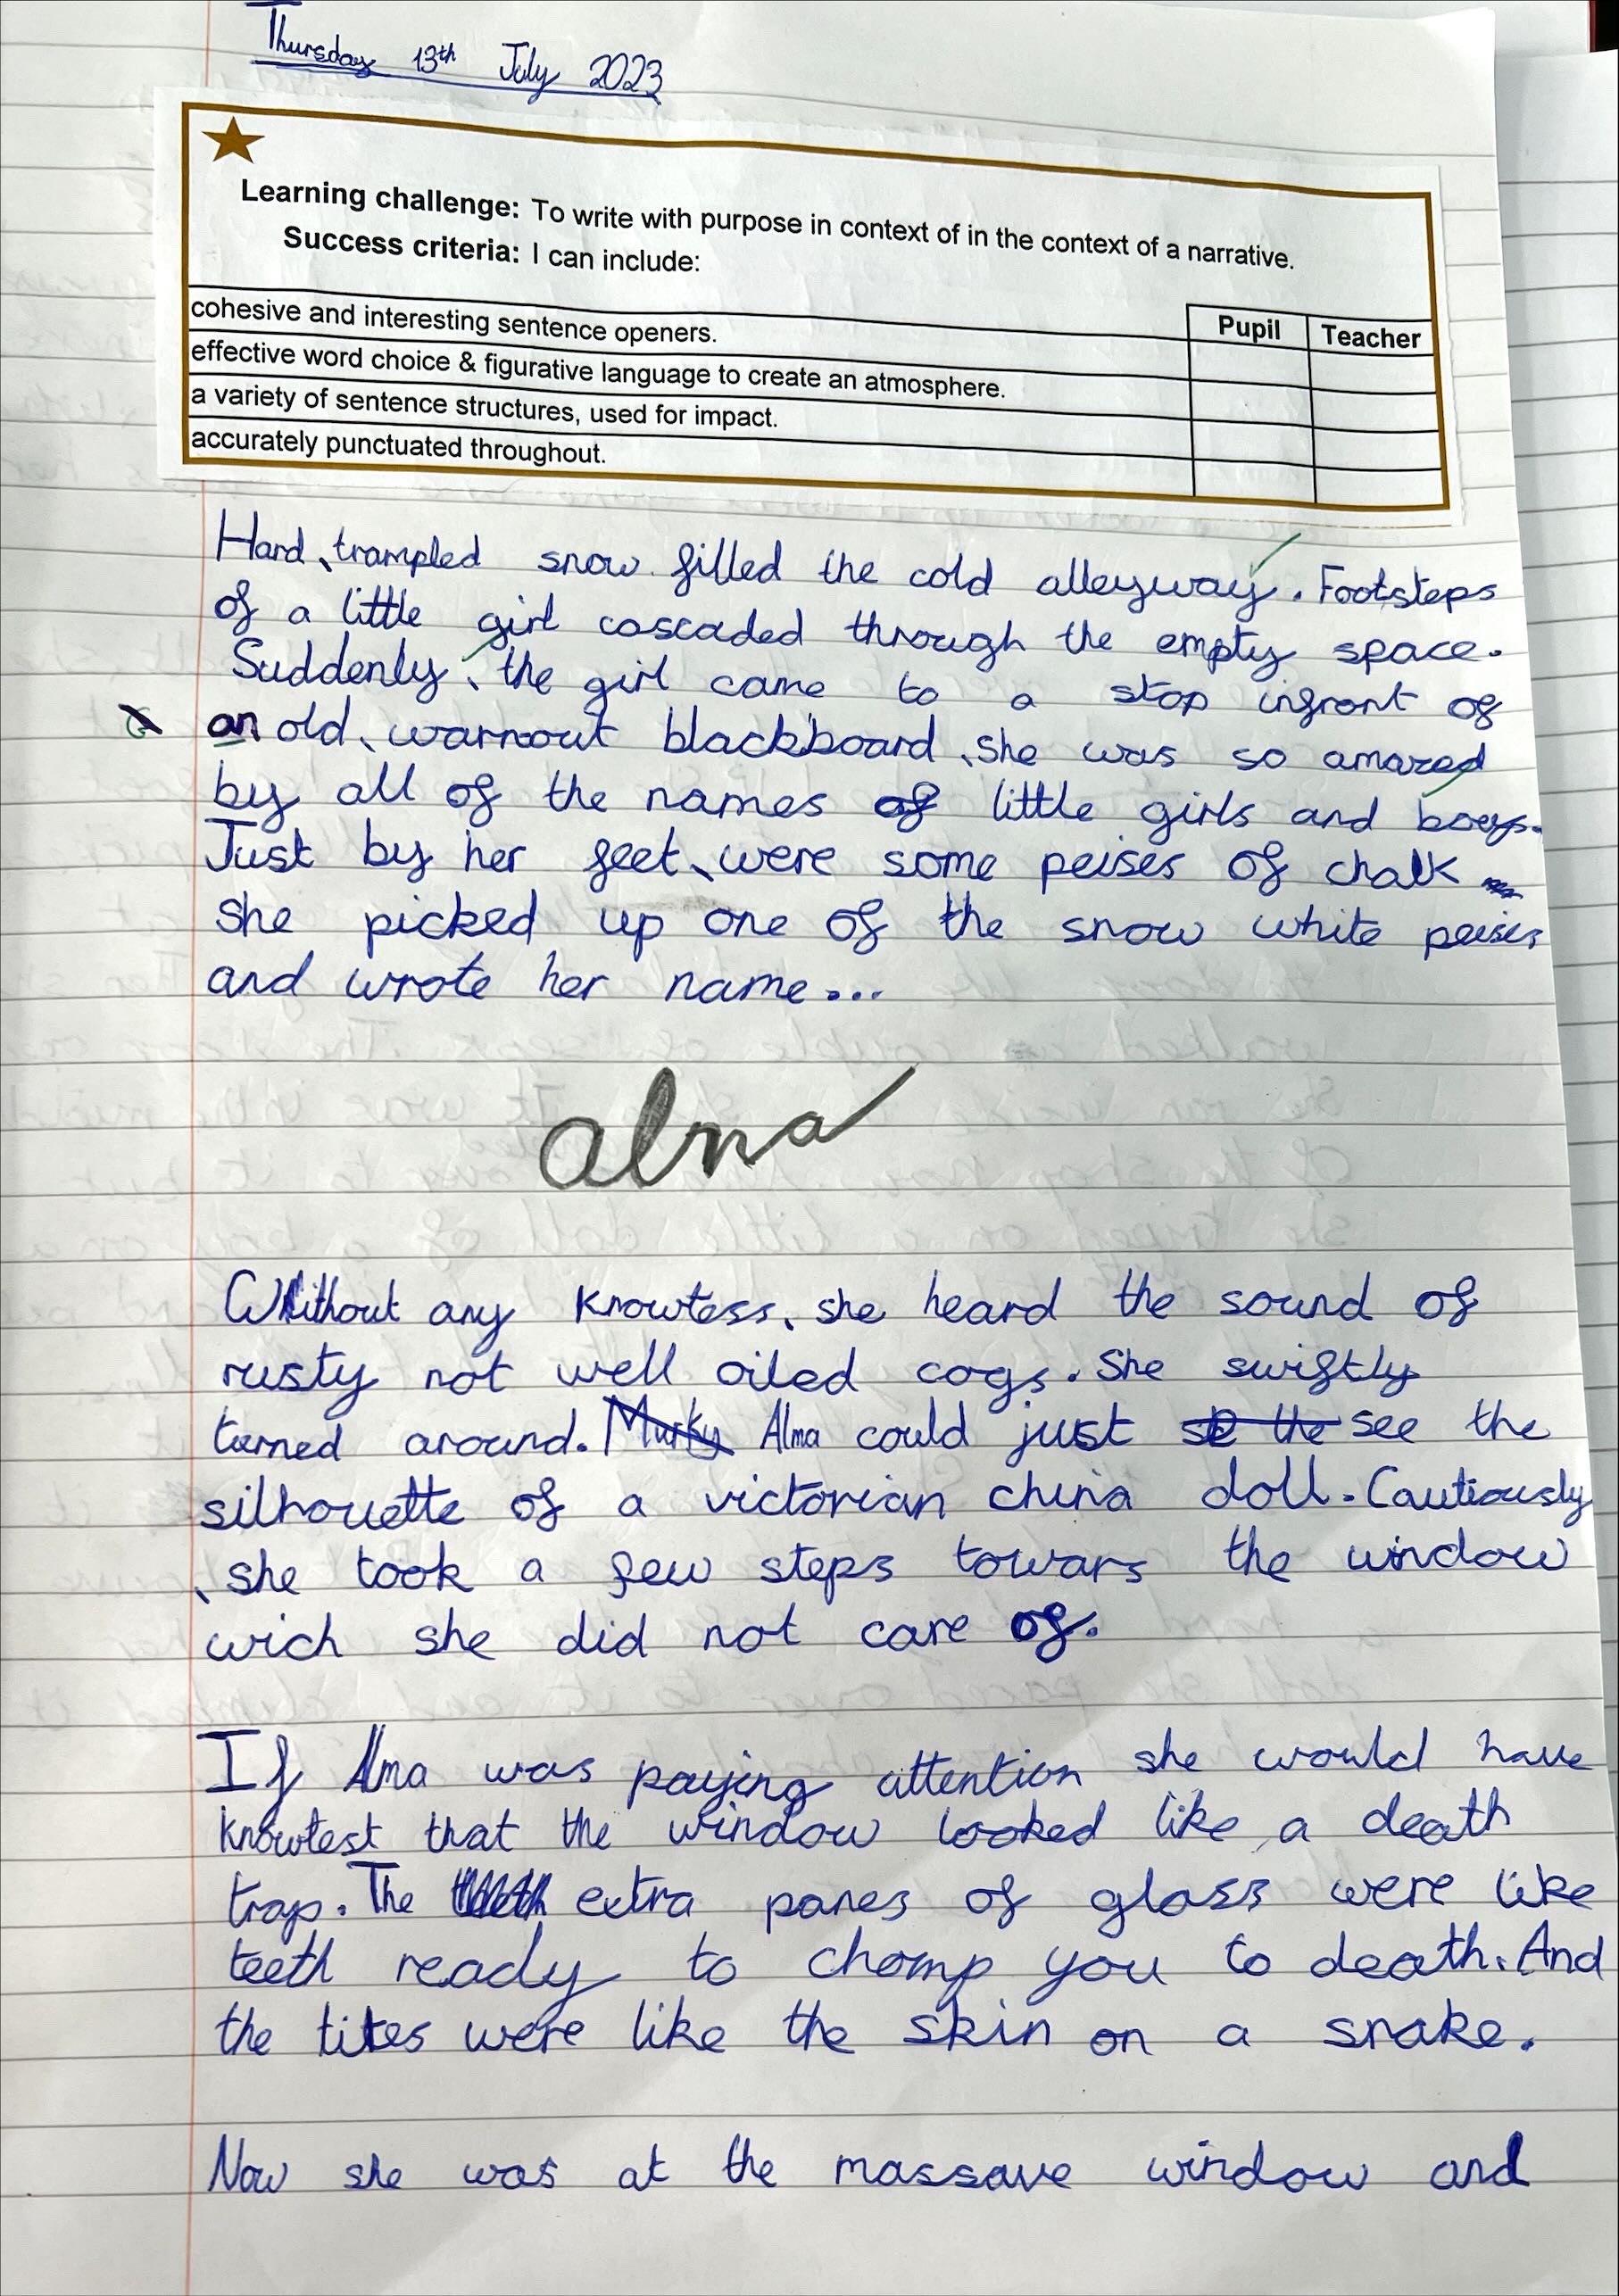 Thursday 13th July 2023
Learning challenge: To write with purpose in context of in the context of a narrative.
Success criteria: I can include:
Pupil Teacher
cohesive and interesting sentence openers.
effective word choice & figurative language to create an atmosphere.
a variety of sentence structures, used for impact.
accurately punctuated throughout.
Hard, trampled snow filled the cold alleyway. Footsteps
of a little girl cascaded through the empty space.
Suddenly, the girl came to a stop infront of
an old, warnout blackboard, she was so amazed
by all of the names of little girls and boys.
Just by her feet, were some peises of chalk
she picked up one of the snow white peises
and wrote her name...
alma
Without any knowtess, she heard the sound of
rusty not well oiled cogs. She swiftly
turned around. Murky Alma could just se the see the
silhouette of a victorian china doll. Cautiously
, she took a few steps towars the window
wich she did not care of.
If Alma was paying attention she would have
knowtest that the window looked like a death
trap. The extra panes of glass were like
teeth ready to chomp you to death. And
the tites were like the skin on a snake.
Now she was at the massave window and